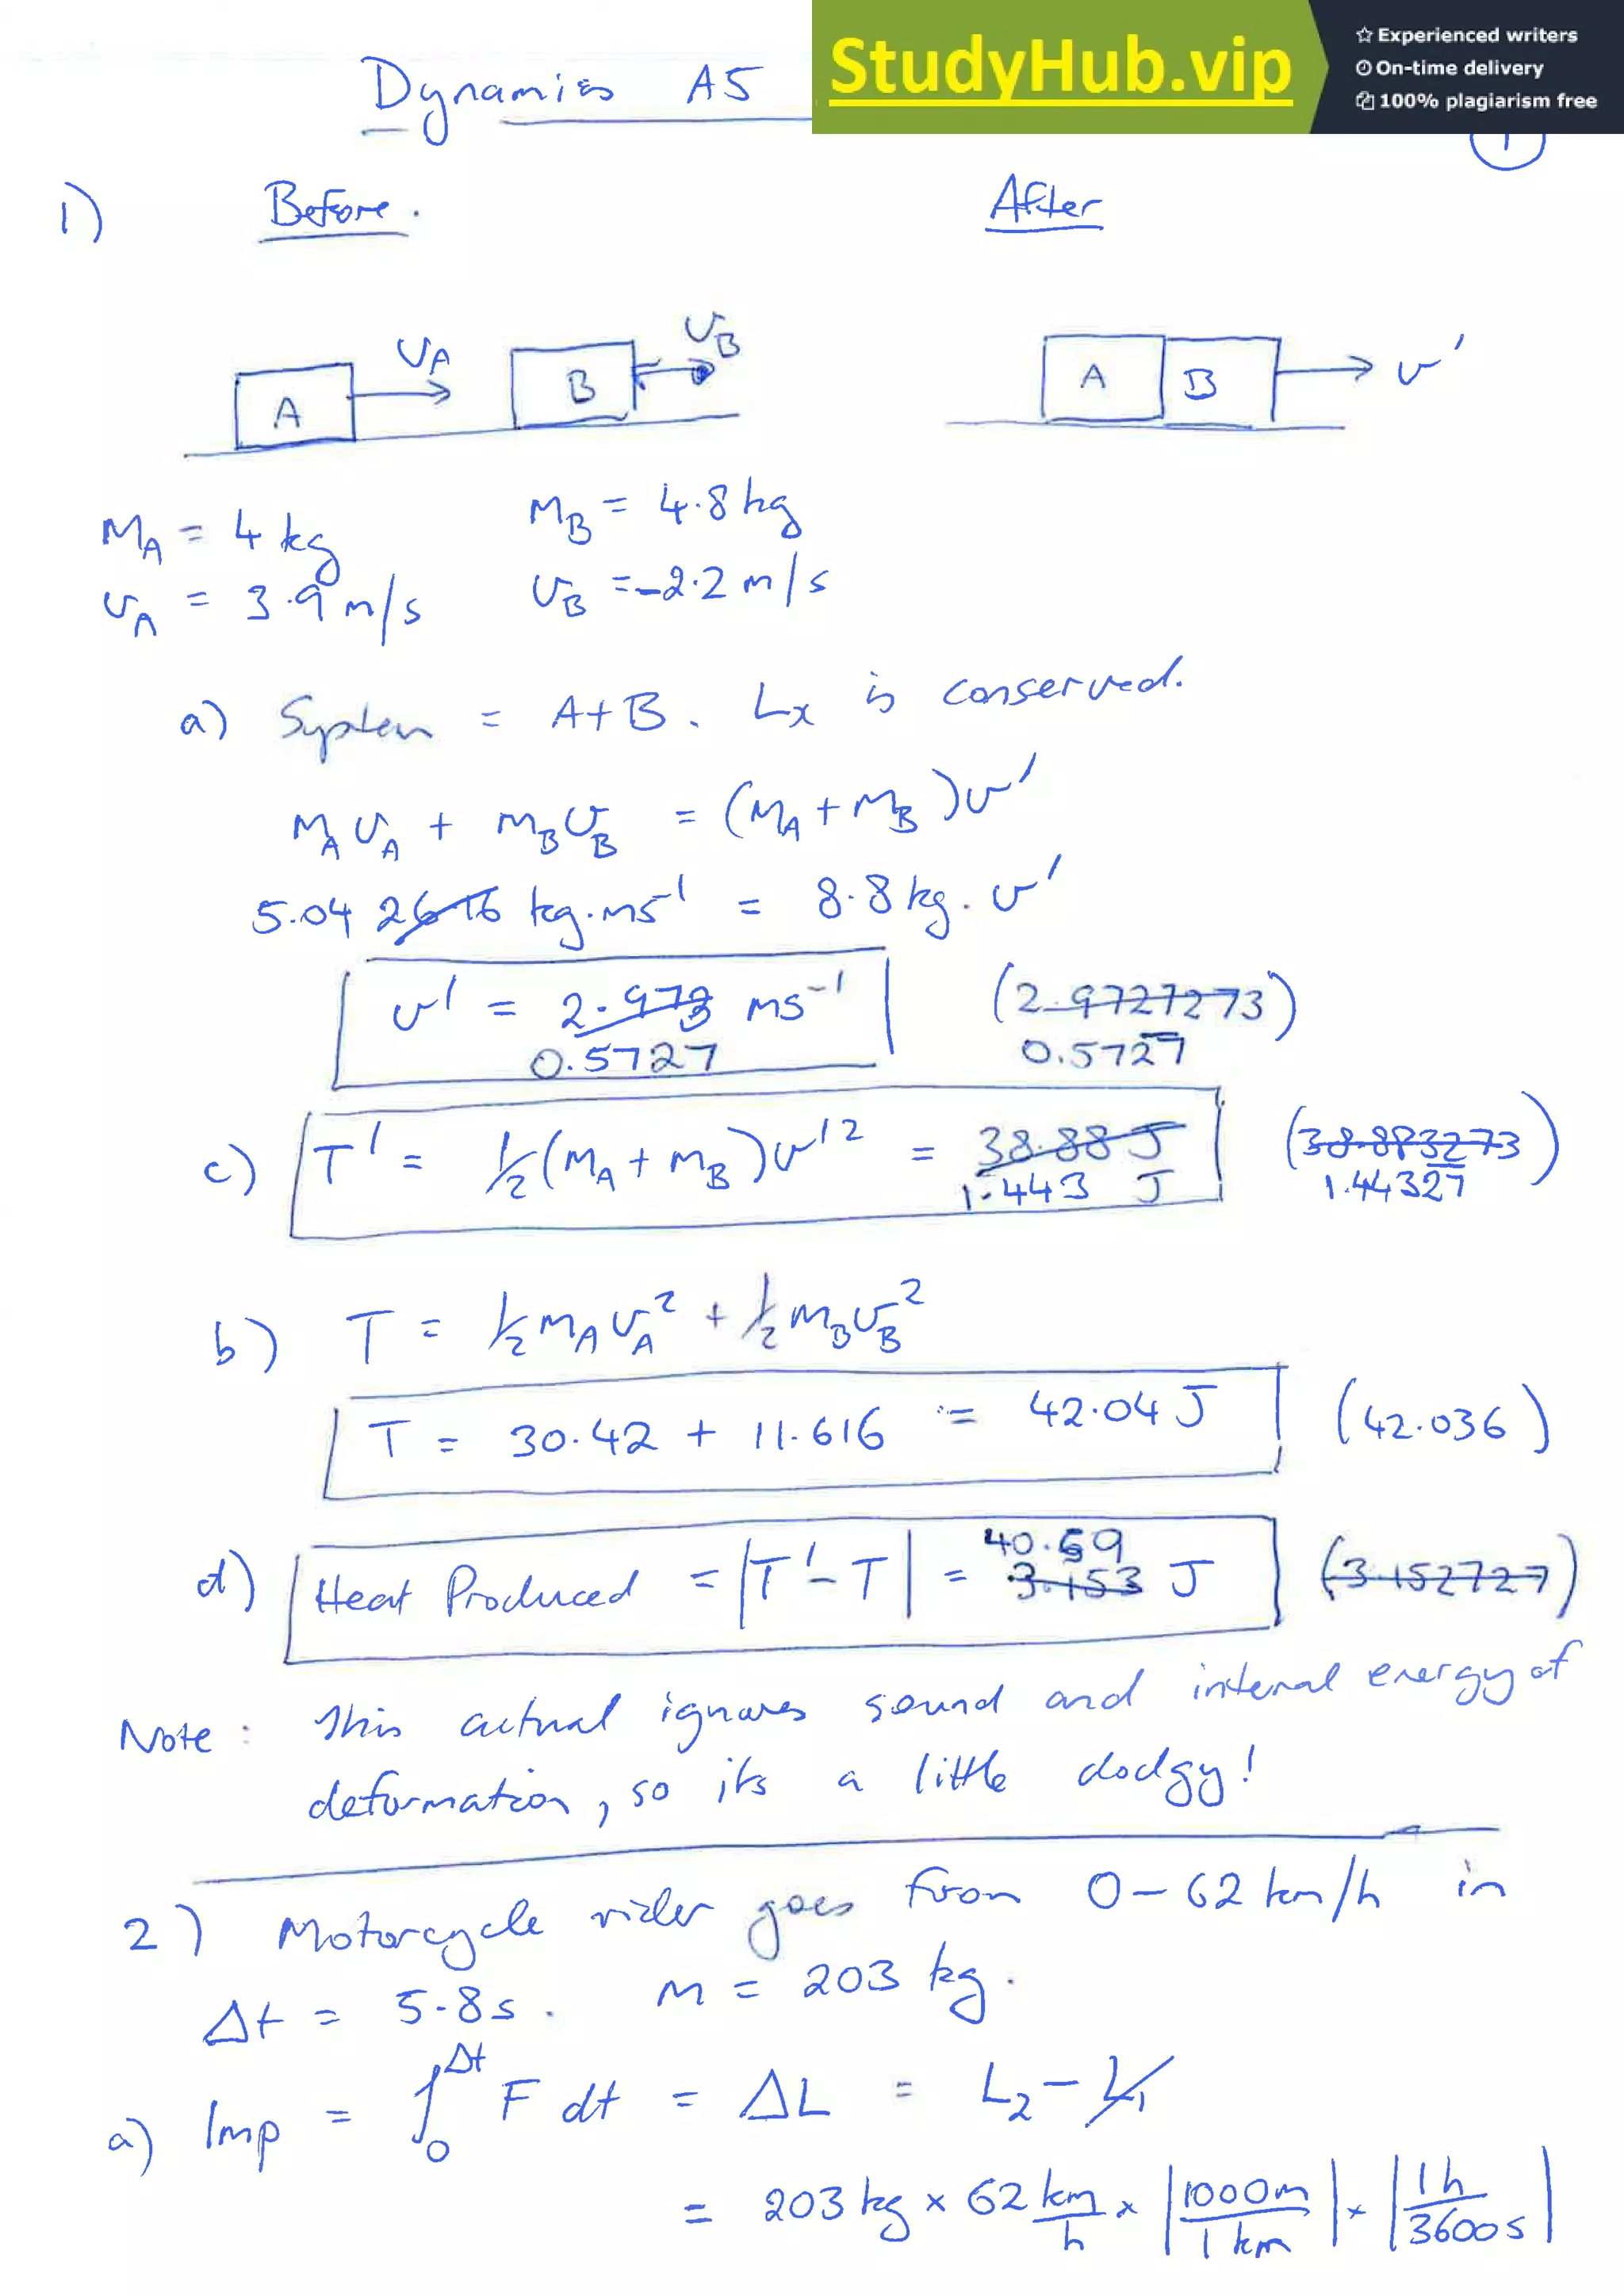 Dynamics A5
StudyHub.vip
Experienced writers
On-time delivery
100% plagiarism free
1
1) Before. After
A v_A B v_B A B v'
M_A = 4 kg M_B = 4.8 kg
v_A = 3.9 m/s v_B = -2.2 m/s
a) System = A+B. Lx is conserved.
M_A v_A + m_B v_B = (M_A + M_B) v'
5.04 2616 kg.ms⁻¹ = 8.8 kg. v'
v' = 2.973 ms⁻¹ (2.9727273)
0.5727 0.5727
c) T' = ½(M_A + M_B) v'² = 38.88 J (38.883273)
1.443 J 1.44327
b) T = ½ M_A v_A² + ½ M_B v_B²
T = 30.42 + 11.616 = 42.04 J (42.036)
40.59
d) Heat Produced = |T' - T| = 3.153 J (3.152727)
Note: This actual ignores sound and internal energy of
deformation, so its a little dodgy!
2) Motorcycle rider goes from 0-62 km/h in
Δt = 5.8 s. M = 203 kg.
a) Imp = ∫₀^Δt F dt = ΔL = L₂ - L₁
= 203 kg × 62 km/h × |1000m/1 km| × |1h/3600s|